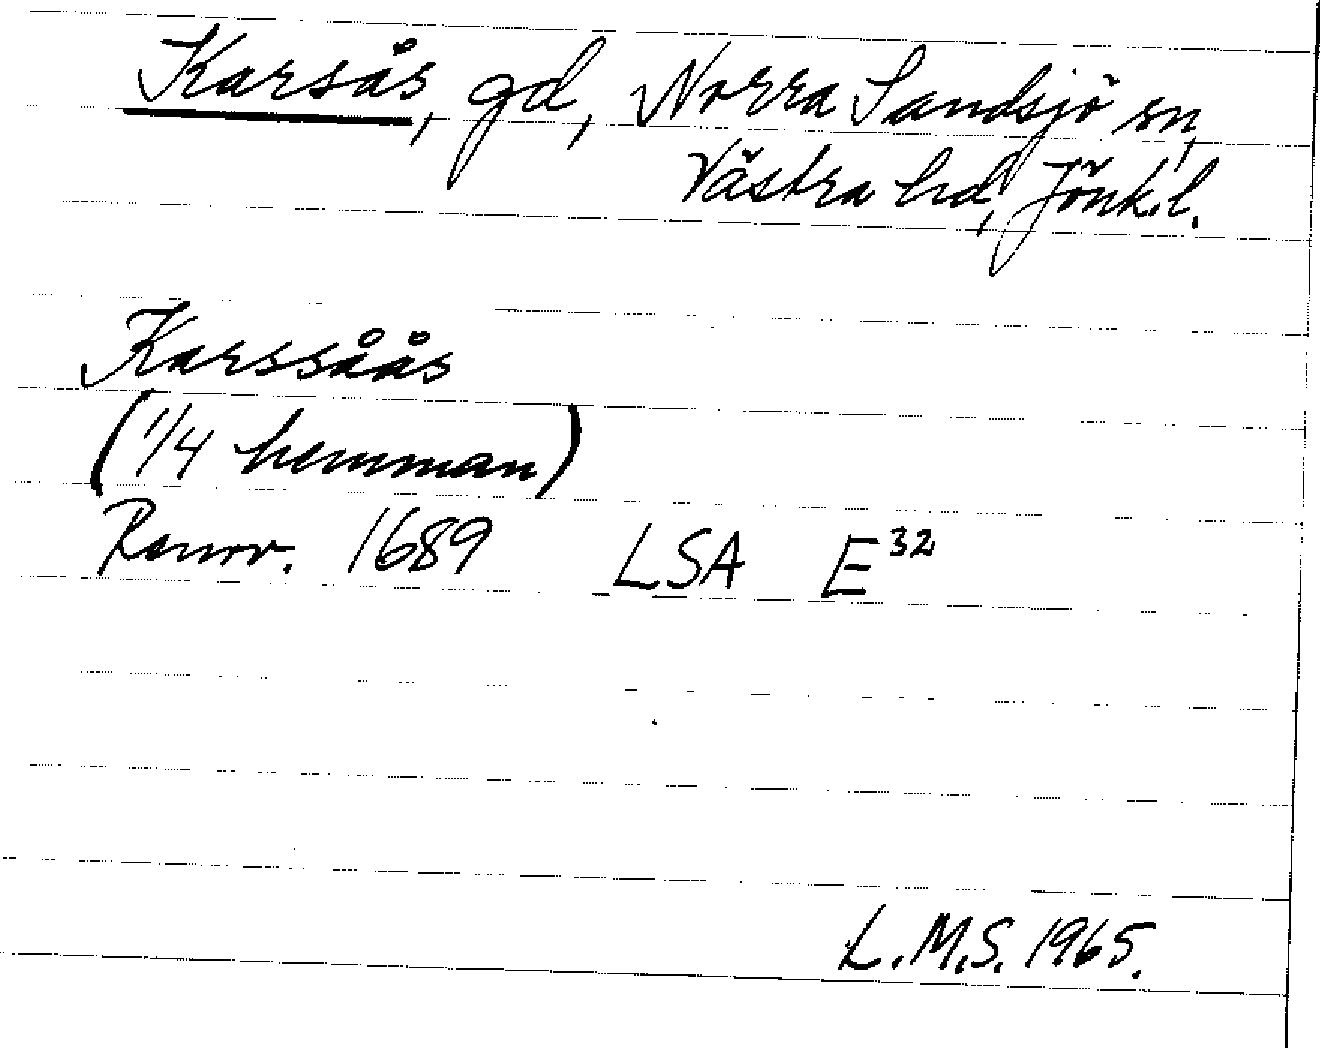 Karsås, gd, Norra Sandsjö sn,
Västra hd, Jönk.l.
Karssåås
(1/4 hemman)
Renov. 1689 LSA E32
L.M.S. 1965.